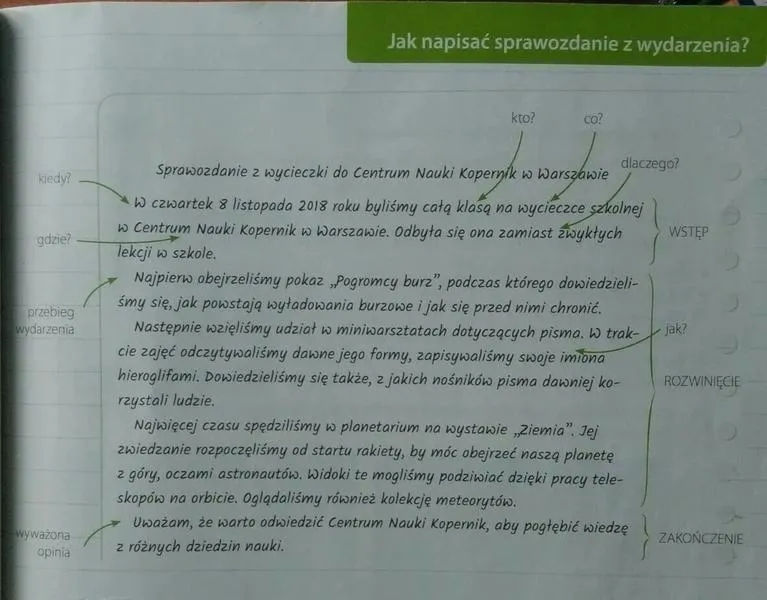 Jak napisać sprawozdanie z wydarzenia?
kto? co?
dlaczego?
Sprawozdanie z wycieczki do Centrum Nauki Kopernik w Warszawie
kiedy?
W czwartek 8 listopada 2018 roku byliśmy całą klasą na wycieczce szkolnej
w Centrum Nauki Kopernik w Warszawie. Odbyła się ona zamiast zwykłych
lekcji w szkole.
gdzie?
WSTĘP
Najpierw obejrzeliśmy pokaz „Pogromcy burz”, podczas którego dowiedzieli-
śmy się, jak powstają wyładowania burzowe i jak się przed nimi chronić.
przebieg
wydarzenia
Następnie wzięliśmy udział w miniwarsztatach dotyczących pisma. W trak-
cie zajęć odczytywaliśmy dawne jego formy, zapisywaliśmy swoje imiona
hieroglifami. Dowiedzieliśmy się także, z jakich nośników pisma dawniej ko-
rzystali ludzie.
jak?
ROZWINIĘCIE
Najwięcej czasu spędziliśmy w planetarium na wystawie „Ziemia”. Jej
zwiedzanie rozpoczęliśmy od startu rakiety, by móc obejrzeć naszą planetę
z góry, oczami astronautów. Widoki te mogliśmy podziwiać dzięki pracy tele-
skopów na orbicie. Oglądaliśmy również kolekcję meteorytów.
wyważona
opinia
Uważam, że warto odwiedzić Centrum Nauki Kopernik, aby pogłębić wiedzę
z różnych dziedzin nauki.
ZAKOŃCZENIE